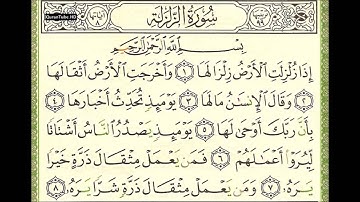 QuranTube HD
سُورَةُ الزَّلْزَلَةِ
بِسْمِ اللَّهِ الرَّحْمَٰنِ الرَّحِيمِ
إِذَا زُلْزِلَتِ الْأَرْضُ زِلْزَالَهَا ١ وَأَخْرَجَتِ الْأَرْضُ أَثْقَالَهَا
٢ وَقَالَ الْإِنسَٰنُ مَا لَهَا ٣ يَوْمَئِذٍ تُحَدِّثُ أَخْبَارَهَا ٤
بِأَنَّ رَبَّكَ أَوْحَىٰ لَهَا ٥ يَوْمَئِذٍ يَصْدُرُ النَّاسُ أَشْتَاتًا
لِّيُرَوْا أَعْمَٰلَهُمْ ٦ فَمَن يَعْمَلْ مِثْقَالَ ذَرَّةٍ خَيْرًا
يَرَهُ ٧ وَمَن يَعْمَلْ مِثْقَالَ ذَرَّةٍ شَرًّا يَرَهُ ٨